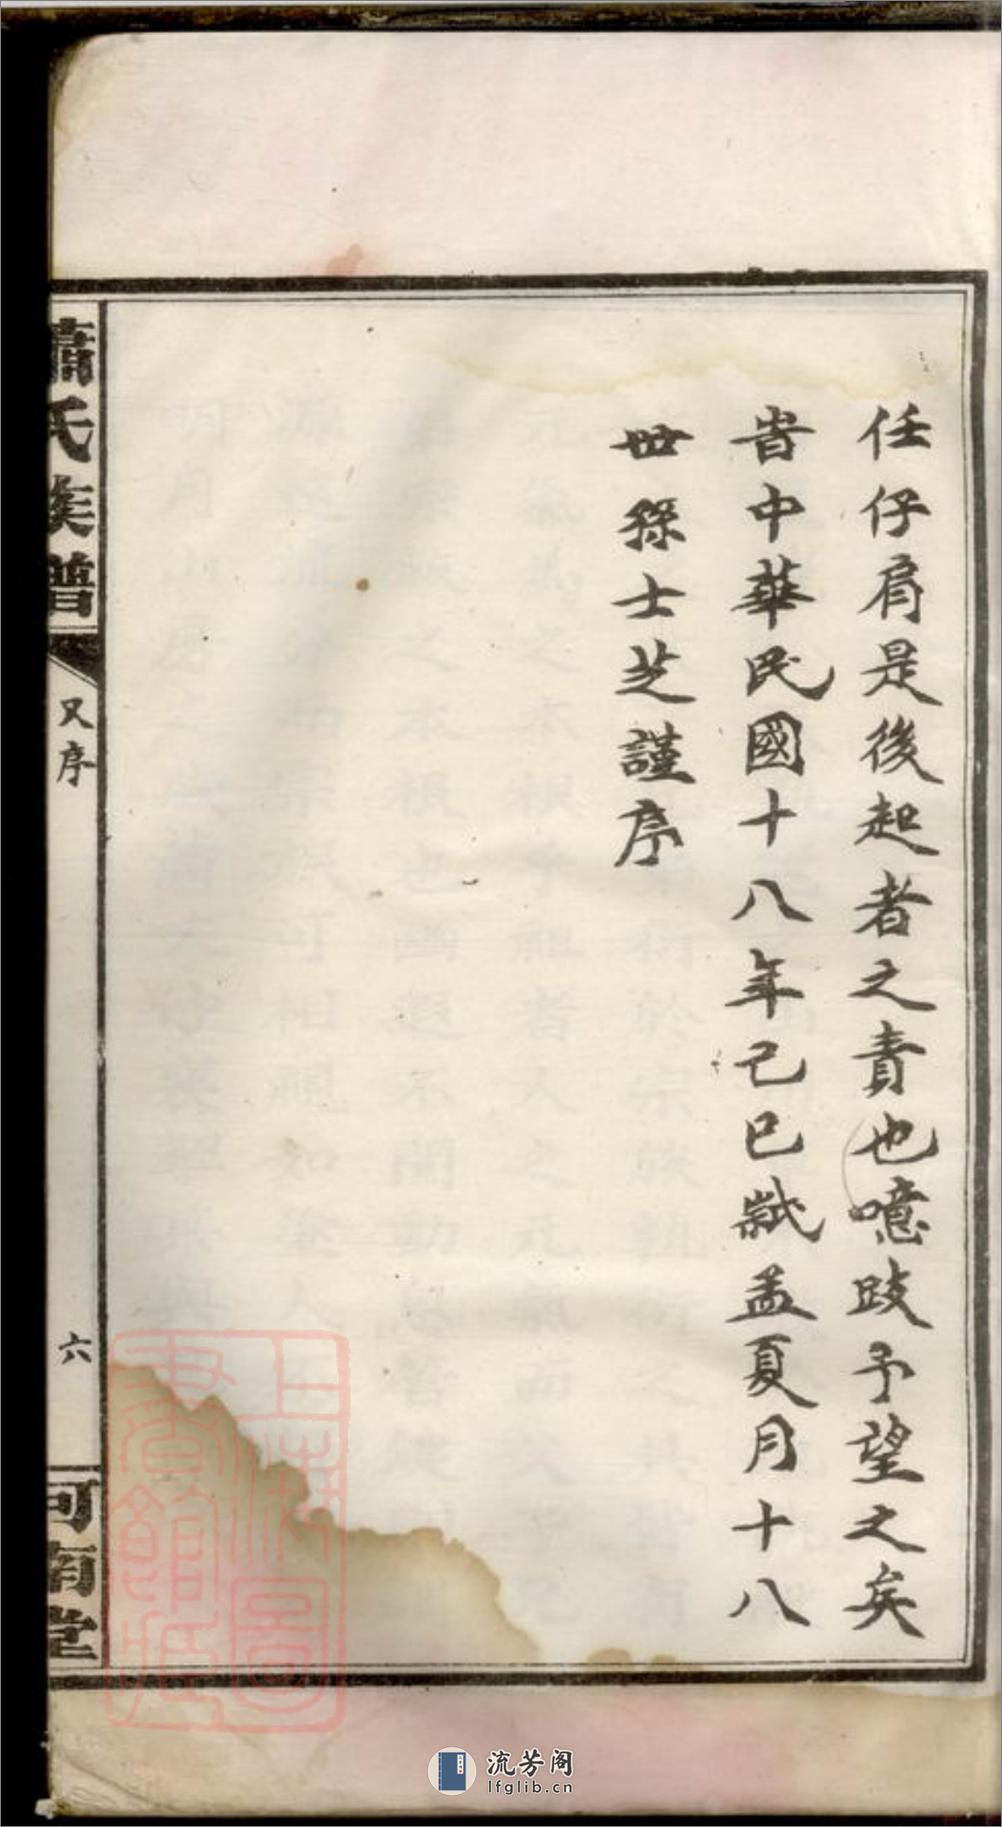 任仔肩是後起者之責也噫跂予望之矣
旹中華民國十八年己巳歲孟夏月十八
世孫士芝謹序
蕭氏族譜
又序
六
河南堂
上海圖
書館藏
流芳阁
lfglib.cn